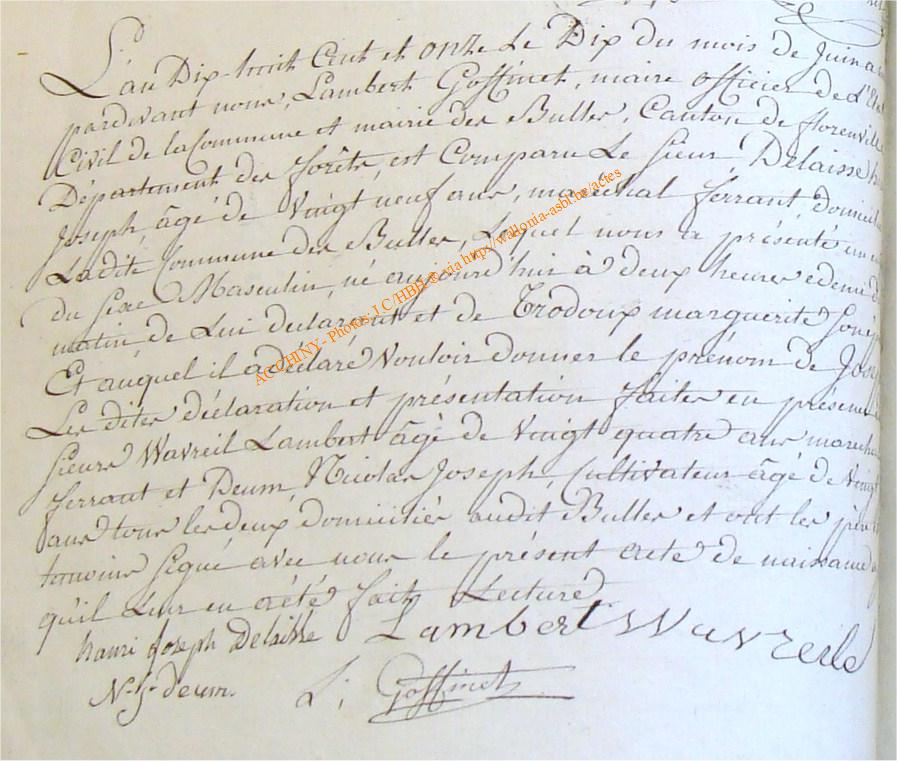 L'an Dix-huit Cent et onze Le Dix du mois de Juin a
pardevant nous, Lambert Goffinet, maire officier de L'Etat
Civil de la Commune et mairie des Bulles, Canton de florenville
Département des forêts, est Comparu Le Sieur Delaisse
Joseph âgé de Vingt neuf ans, maréchal ferrant, domicilié
Ladite Commune des Bulles, Lequel nous a présenté un
du sexe Masculin, né aujourd'hui à deux heures edemi
matin, de Lui declarant et de Trodoux marguerite
Et auquel il a déclaré Vouloir donner le prénom de Joseph
Les dites déclaration et présentation faites en présence
Sieurs Wavreil Lambert âgé de Vingt quatre ans marechal
ferrant et Deum, Nicolas Joseph, Cultivateur âgé de Vingt
ans tous les deux domiciliés audit Bulles et ont les père
temoins signé avec nous le présent acte de naissance
qu'il Leur en aété fait Lecture
henri Joseph Delaisse Lambert Wavreile
N. J. deum. L; Goffinet
ACCHINY - Photos: J C/HBH © via http://wallonia-asbl.be/actes